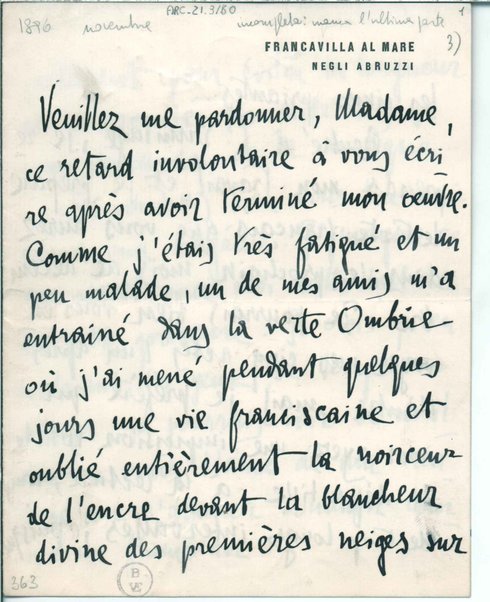 ARC.21.3/60
1
1896 novembre incompleta: manca l'ultima parte
3)
FRANCAVILLA AL MARE
NEGLI ABRUZZI
Veuillez me pardonner, Madame,
ce retard involontaire à vous écri
re après avoir terminé mon oeuvre.
Comme j'étais très fatigué et un
peu malade, un de mes amis m'a
entrainé dans la verte Ombrie
où j'ai mené pendant quelques
jours une vie franciscaine et
oublié entièrement la noirceur
de l'encre devant la blancheur
divine des premières neiges sur
363
B
VE